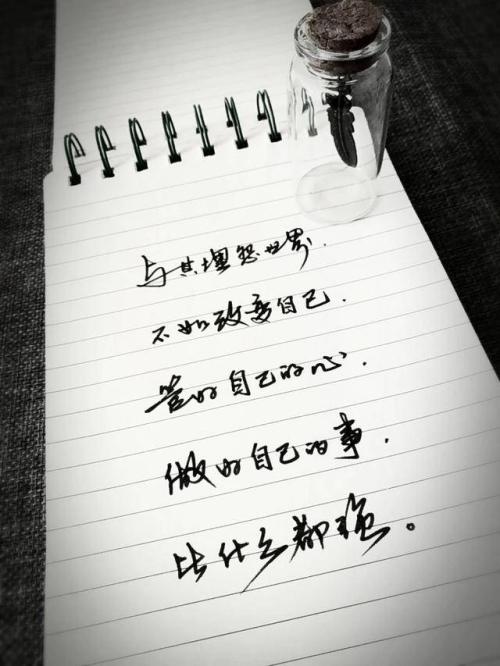 与其埋怨世界.
不如改变自己.
管好自己的心.
做好自己的事.
比什么都强。